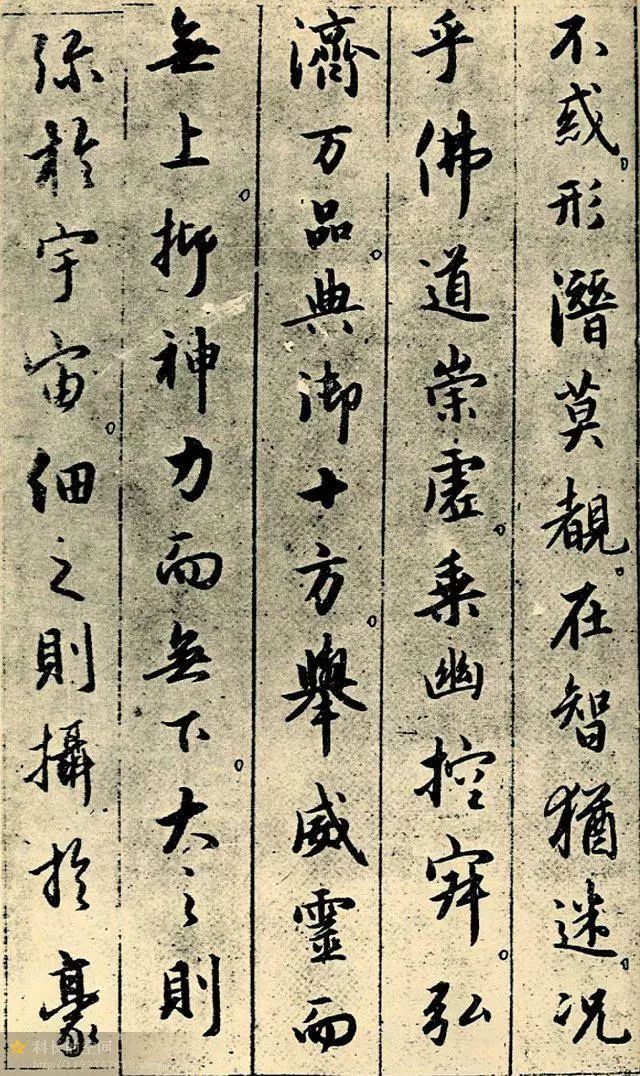 不惑。形潛莫覩。在智猶迷。况
乎佛道崇虛。乘幽控寂。弘
濟万品。典御十方。舉威靈而
無上。抑神力而無下。大之則
弥於宇宙。細之則攝於豪